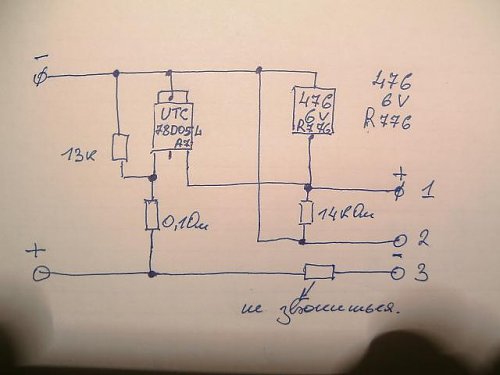 -
476
6V
R776
476
6V
R776
UTC
78D05L
AZ
13к
+
1
0,1Ом
14кОм
2
+
-
3
не звониться.